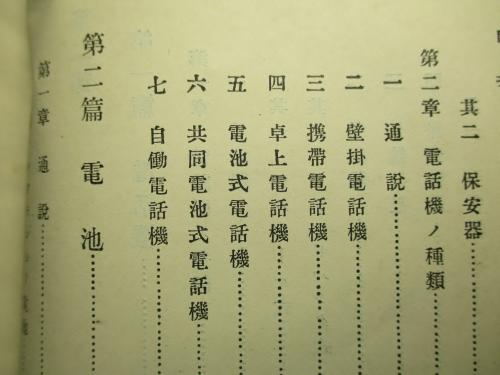 其二 保安器
第二章 電話機ノ種類
一 通說
二 壁掛電話機
三 携帶電話機
四 卓上電話機
五 電池式電話機
六 共同電池式電話機
七 自働電話機
第二篇 電池
第一章 通說